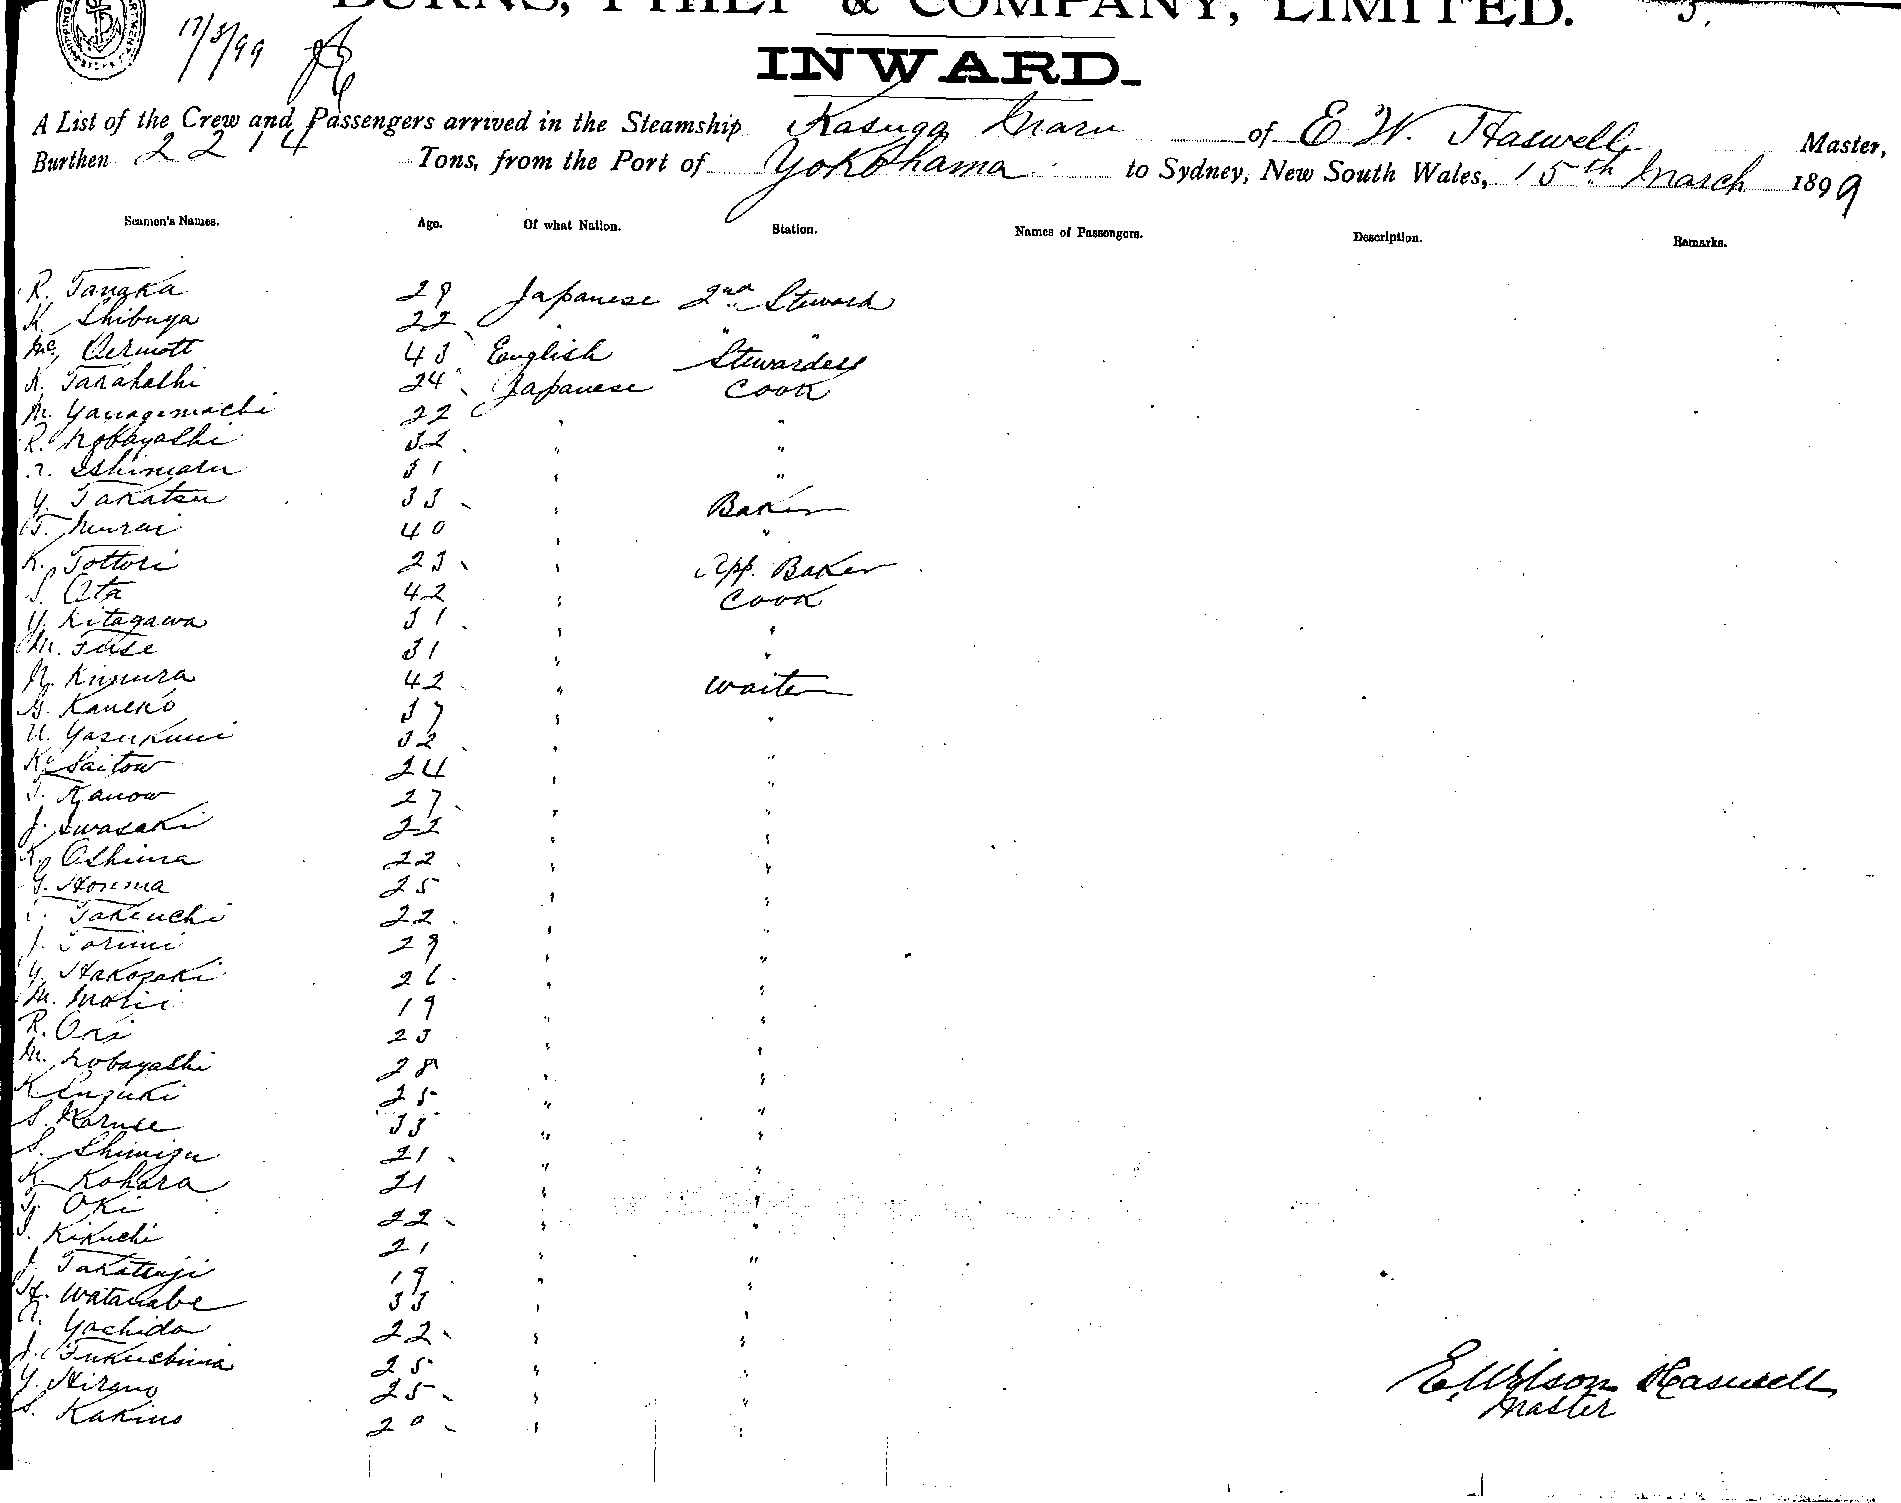 BURNS, PHILP & COMPANY, LIMITED. 5.
17/3/99
INWARD.
A List of the Crew and Passengers arrived in the Steamship Kasuga Maru of E W. Haswell Master,
Burthen 2214 Tons, from the Port of Yokohama to Sydney, New South Wales, 15th March 1899
Seamen's Names. Age. Of what Nation. Station. Names of Passengers. Description. Remarks.
R. Tanaka 29 Japanese 2nd Steward
K. Shibuya 22 " "
Mc, Dermott 43 English Stewardess
K. Takahashi 24 Japanese Cook
M. Yanagimachi 22 " "
R. Kobayashi 32 " "
Ishimaru 31 " "
Y. Takatsu 33 " Baker
T. Murai 40 " "
K. Tottori 23 " App. Baker
S. Ota 42 " Cook
Y. Kitagawa 31 " "
M. Fuse 31 " "
N. Kimura 42 " Waiter
G. Kaneko 37 " "
U. Yasukuni 32 " "
K. Saitow 24 " "
T. Kanow 27 " "
J. Iwasaki 22 " "
K. Oshima 22 " "
G. Honma 25 " "
T. Takeuchi 22 " "
J. Torimi 29 " "
Y. Hakozaki 26 " "
M. Morii 19 " "
R. Oki 23 " "
M. Kobayashi 28 " "
K Suzuki 25 " "
S. Haruse 33 " "
S. Shimizu 21 " "
K. Kohara 21 " "
T. Oki 22 " "
I. Kikuchi 21 " "
J. Takatsuji 19 " "
H. Watanabe 33 " "
Yoshida 22 " "
J. Fukushima 25 " "
Y. Hirano 25 " "
S. Kakino 20 " "
E. Wilson Haswell
Master